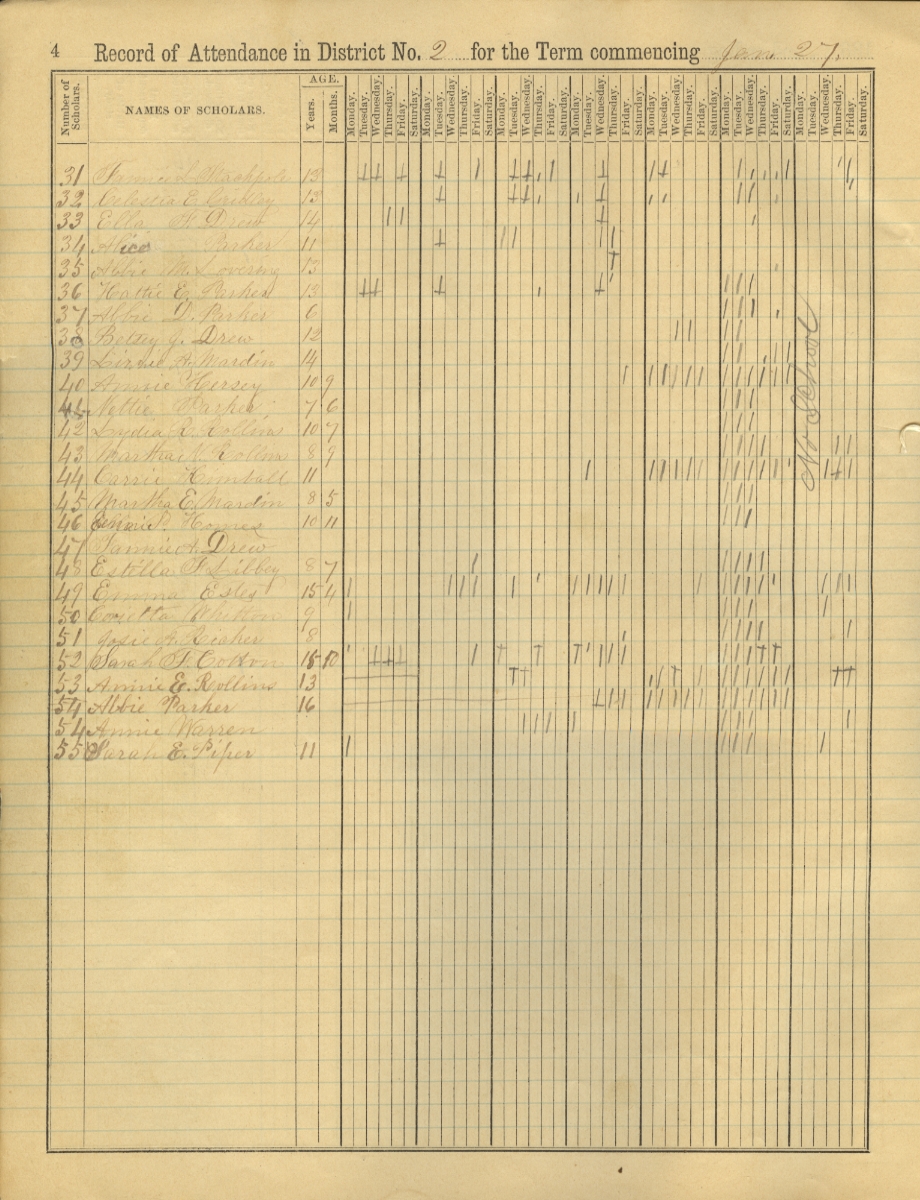 4 Record of Attendance in District No. 2 for the Term commencing Jan. 27.
Number of Scholars. NAMES OF SCHOLARS. AGE. Years. Months. Monday. Tuesday. Wednesday. Thursday. Friday. Saturday. Monday. Tuesday. Wednesday. Thursday. Friday. Saturday. Monday. Tuesday. Wednesday. Thursday. Friday. Saturday. Monday. Tuesday. Wednesday. Thursday. Friday. Saturday. Monday. Tuesday. Wednesday. Thursday. Friday. Saturday. Monday. Tuesday. Wednesday. Thursday. Friday. Saturday. Monday. Tuesday. Wednesday. Thursday. Friday. Saturday.
31 13
32 Celestia E. 13
33 Ella H. Drew 14
34 Alice Parker 11
35 Abbie M. Lovering 13
36 Hattie E. Parker 13
37 Abbie D. Parker 6
38 Betsey J. Drew 12
39 Lizzie A. Mardin 14
40 Annie Hersey 10 9
41 Nettie Parker 7 6
42 Lydia R. Rollins 10 7
43 Martha N. Rollins 8 9
44 Carrie Kimball 11
45 Martha E. Mardin 8 5
46 10 11
47 Fannie A. Drew
48 Estella F. Libbey 8 7
49 Emma Estes 15 4
50 9
51 Josie A. 8
52 Sarah F. Cotton 15 10
53 Annie E. Rollins 13
54 Abbie Parker 16
54 Annie Warren
55 Sarah E. Piper 11
No School